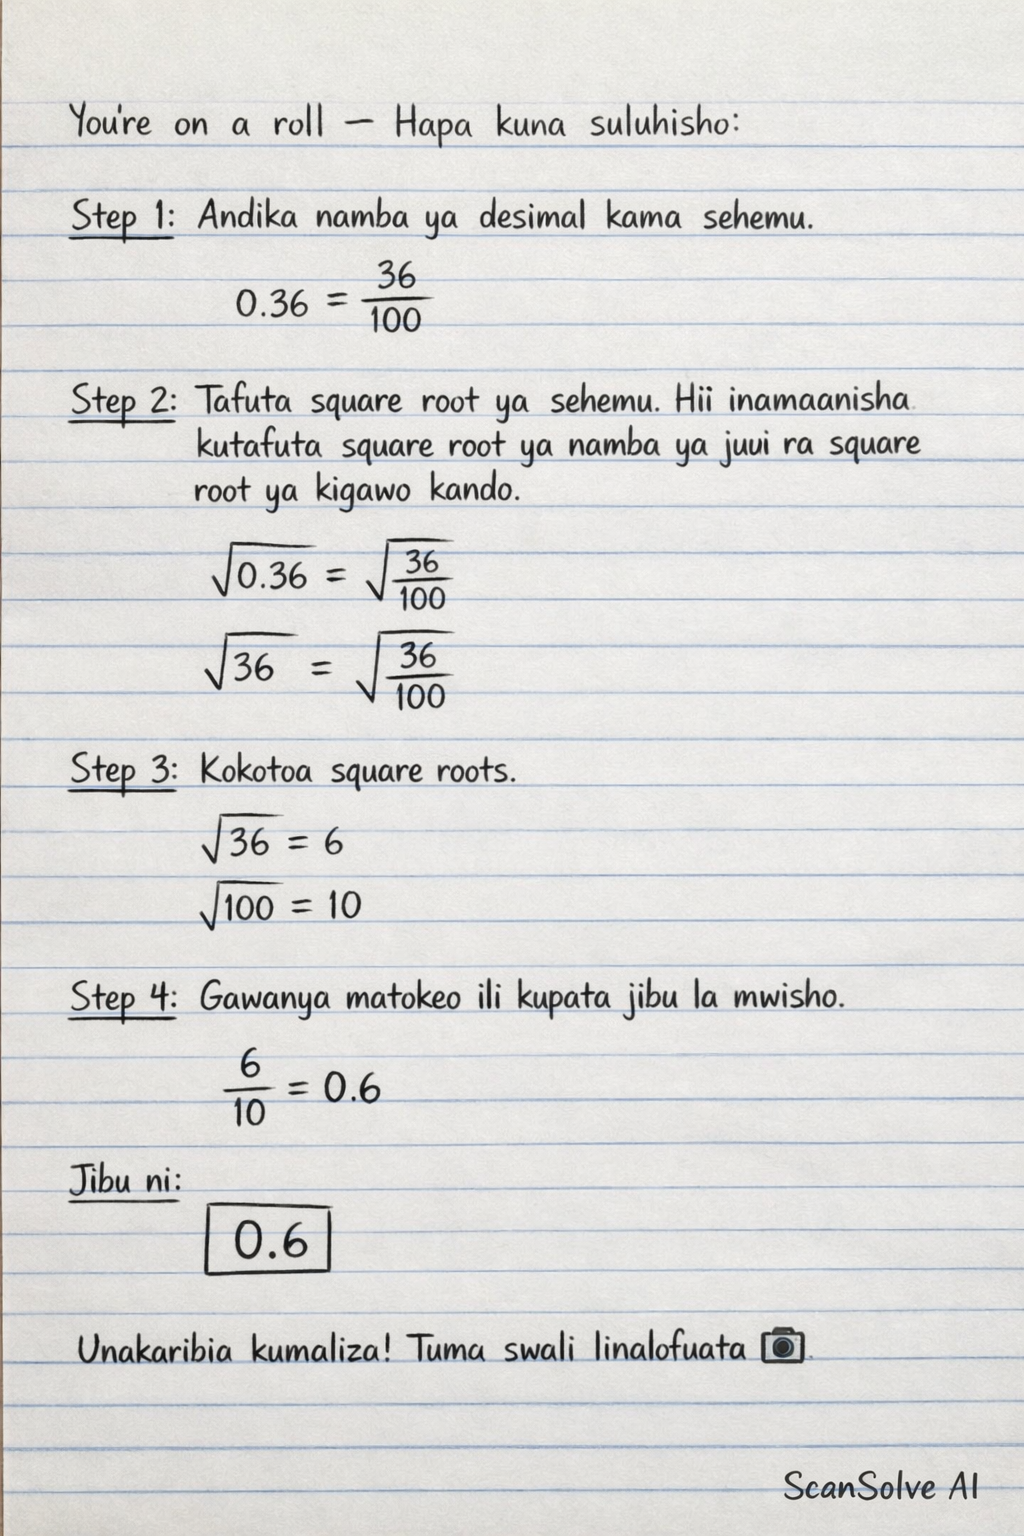 You're on a roll — Hapa kuna suluhisho:
Step 1: Andika namba ya desimal kama sehemu.
0.36 = 36/100
Step 2: Tafuta square root ya sehemu. Hii inamaanisha
kutafuta square root ya namba ya juui ra square
root ya kigawo kando.
√0.36 = √36/100
√36 = √36/100
Step 3: Kokotoa square roots.
√36 = 6
√100 = 10
Step 4: Gawanya matokeo ili kupata jibu la mwisho.
6/10 = 0.6
Jibu ni:
0.6
Unakaribia kumaliza! Tuma swali linalofuata
ScanSolve AI